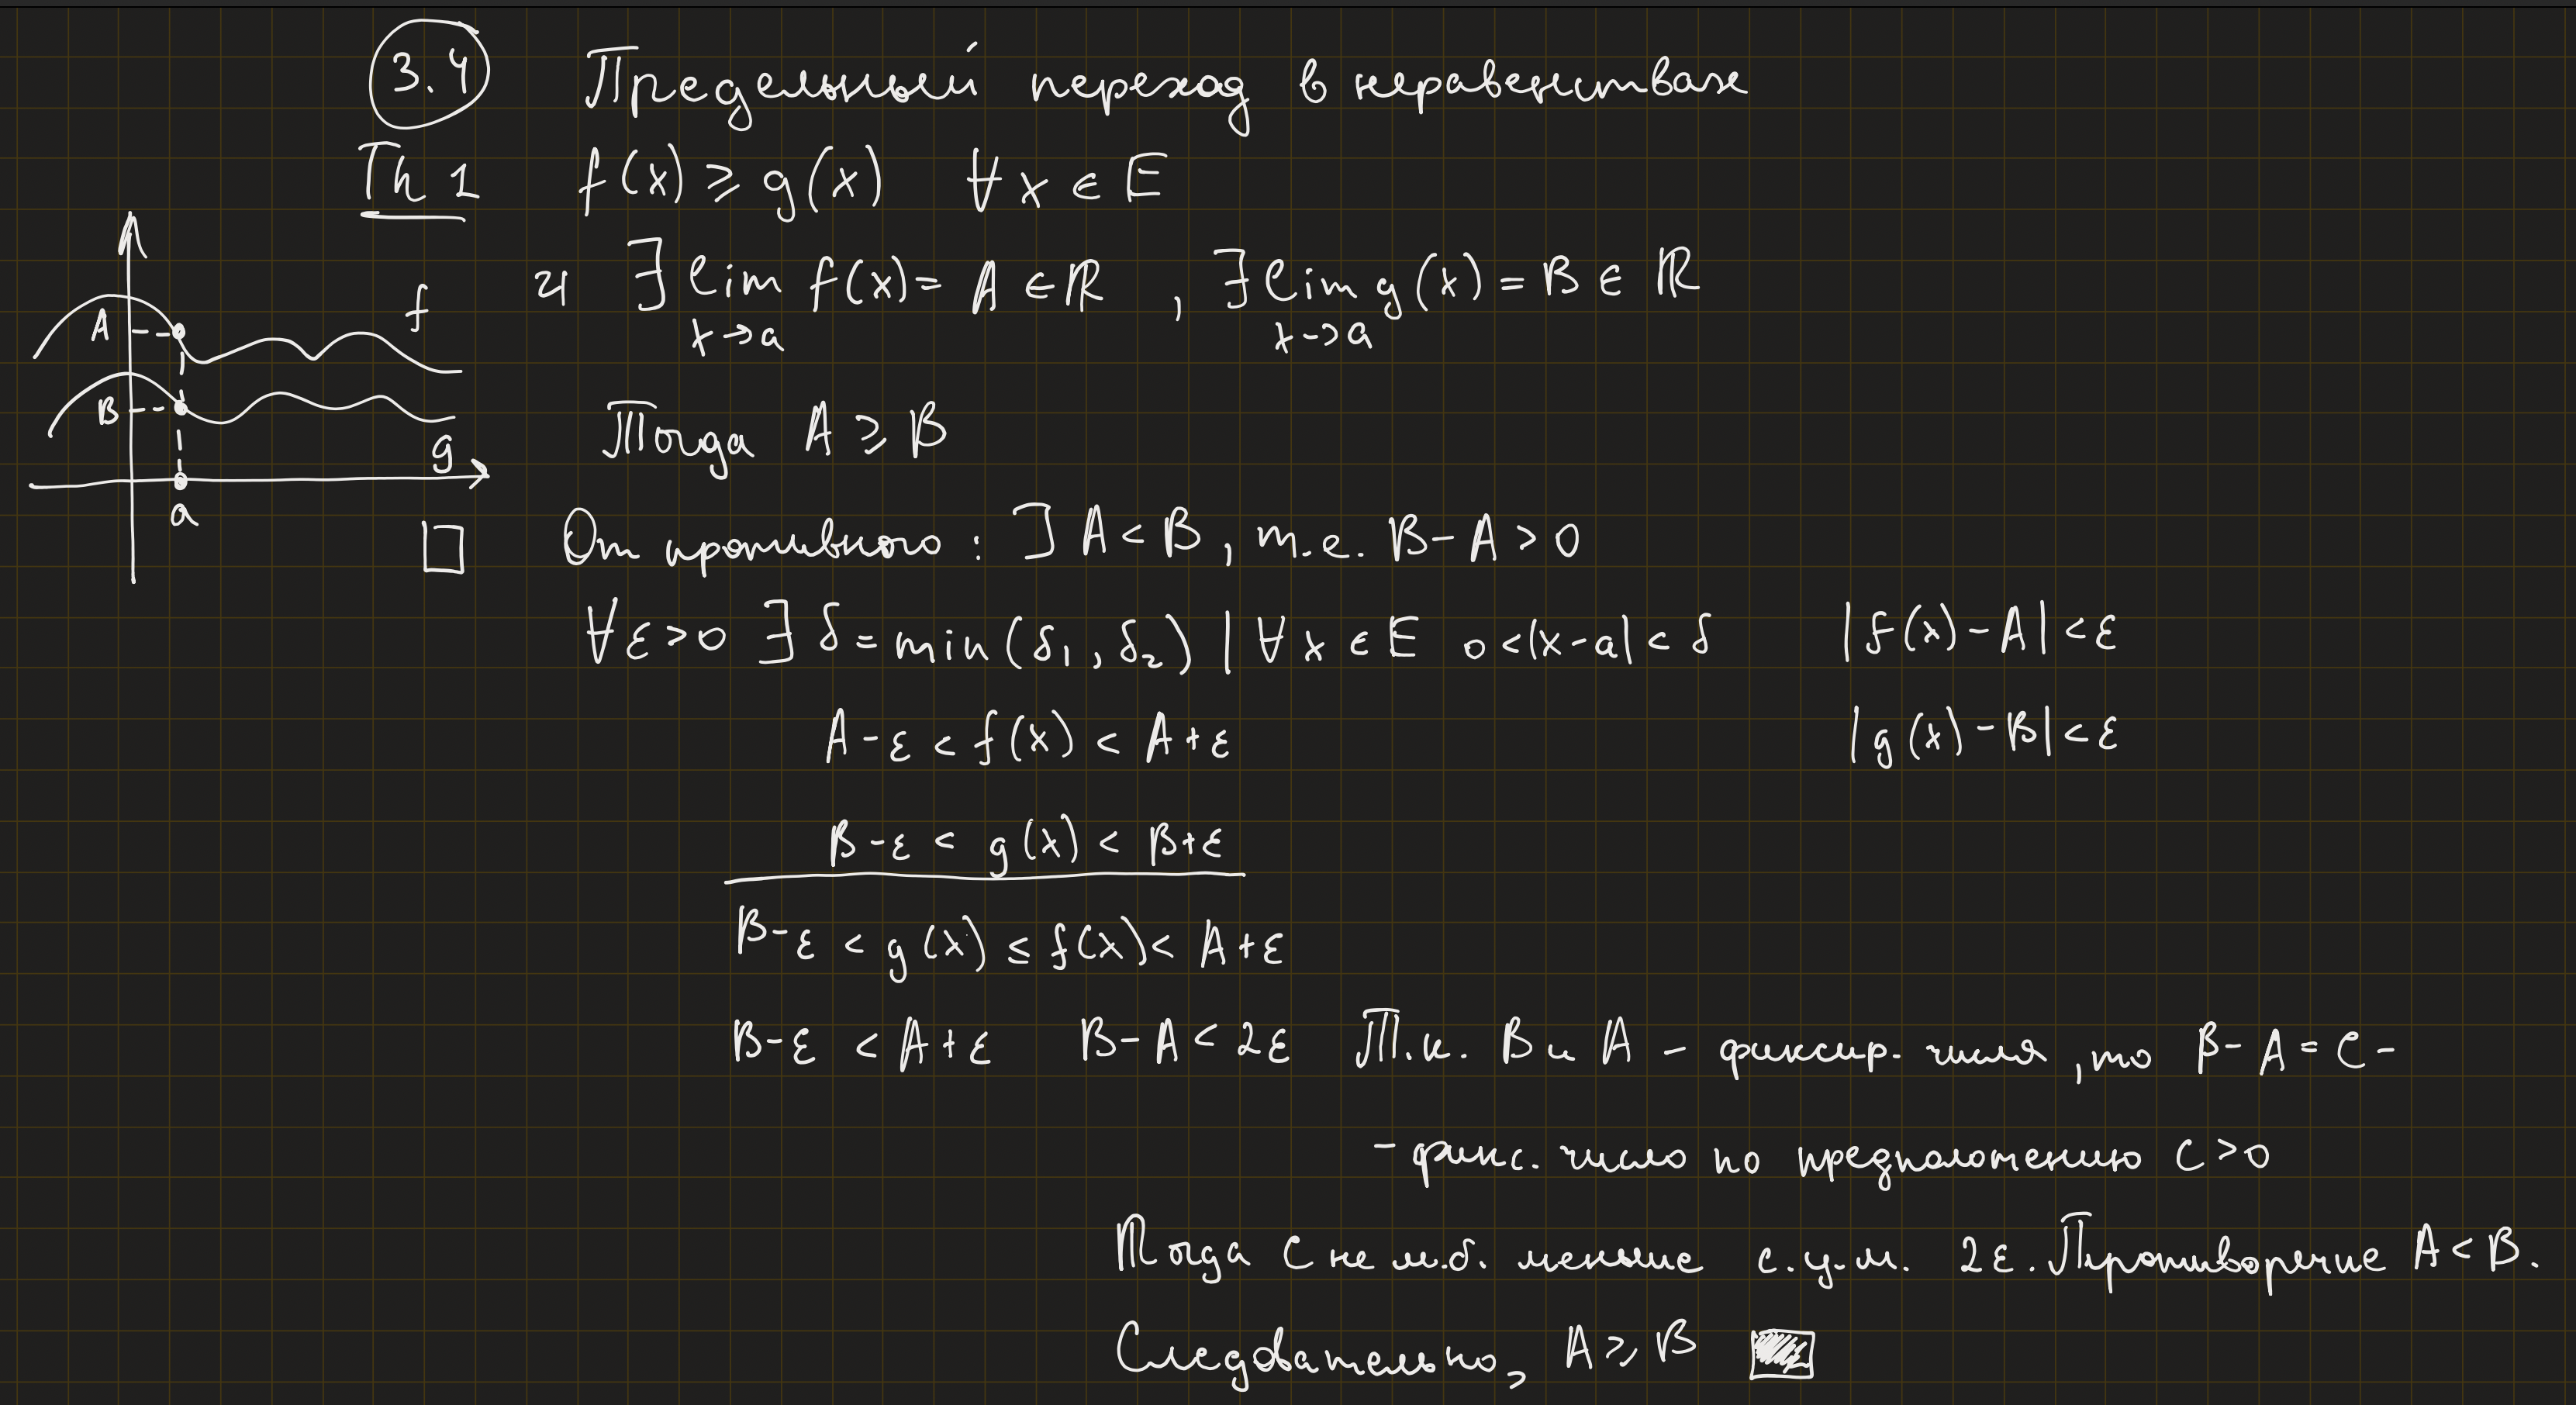 3.4 Предельный переход в неравенствах
Th 1 f(x) ⩾ g(x) ∀ x ∈ E
и ∃ lim f(x) = A ∈ ℝ , ∃ lim g(x) = B ∈ ℝ
x→a x→a
A f
B g
a
Тогда A ⩾ B
□ От противного : ] A < B , т.е. B - A > 0
∀ε > 0 ∃ δ = min(δ₁, δ₂) | ∀ x ∈ E 0 < |x - a| < δ |f(x) - A| < ε
A - ε < f(x) < A + ε |g(x) - B| < ε
B - ε < g(x) < B + ε
B - ε < g(x) ≤ f(x) < A + ε
B - ε < A + ε B - A < 2ε Т.к. B и A - фиксир. числа , то B - A = C -
- фикс. число по предположению C > 0
Тогда C не м.б. меньше с.у.м. 2ε. Противоречие A < B.
Следовательно, A ⩾ B